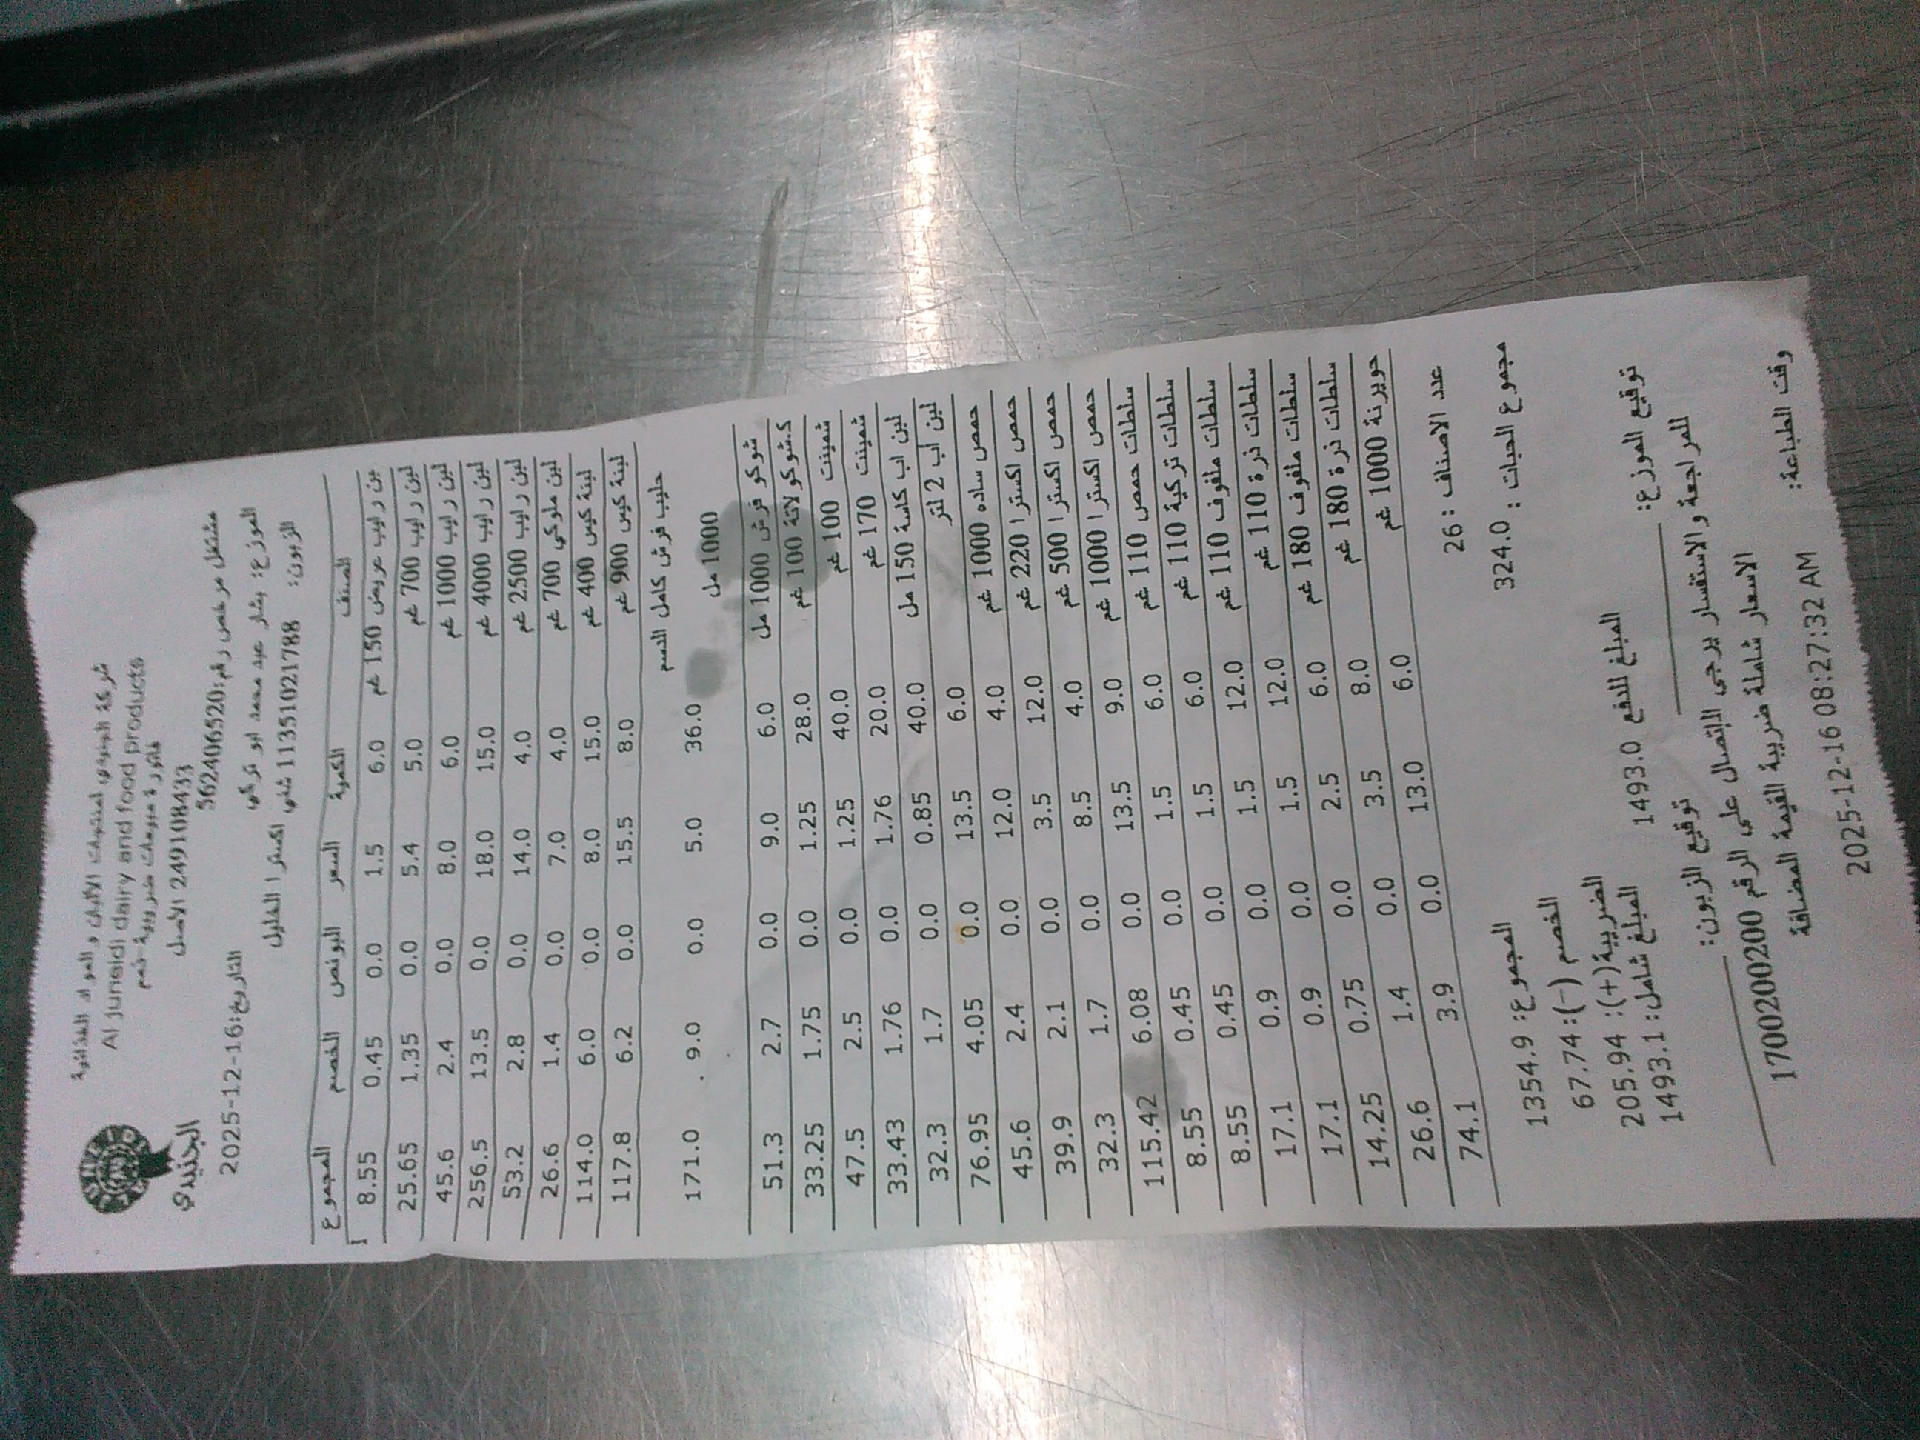 الجنيدي
شركة الجنيدي لمنتجات الألبان و المواد الغذائية
Al juneidi dairy and food products
فاتورة مبيعات ضريبية-خصم
249108433 الاصل
مشتغل مرخص رقم:562406520
التاريخ:2025-12-16
الموزع: بشار عبد محمد ابو تركي
الزبون: 11351021788 شني اكسترا الخليل
الصنف الكمية السعر البونص الخصم المجموع
لبن رايب عروض 150 غم 6.0 1.5 0.0 0.45 8.55
لبن رايب 700 غم 5.0 5.4 0.0 1.35 25.65
لبن رايب 1000 غم 6.0 8.0 0.0 2.4 45.6
لبن رايب 4000 غم 15.0 18.0 0.0 13.5 256.5
لبن رايب 2500 غم 4.0 14.0 0.0 2.8 53.2
لبن ملوكي 700 غم 4.0 7.0 0.0 1.4 26.6
لبنة كيس 400 غم 15.0 8.0 0.0 6.0 114.0
لبنة كيس 900 غم 8.0 15.5 0.0 6.2 117.8
حليب فرش كامل الدسم
1000 مل 36.0 5.0 0.0 9.0 171.0
شوكو فرش 1000 مل 6.0 9.0 0.0 2.7 51.3
ك.شوكولاتة 100 غم 28.0 1.25 0.0 1.75 33.25
شمينت 100 غم 40.0 1.25 0.0 2.5 47.5
شمينت 170 غم 20.0 1.76 0.0 1.76 33.43
لبن اب كاسة 150 مل 40.0 0.85 0.0 1.7 32.3
لبن اب 2 لتر 6.0 13.5 0.0 4.05 76.95
حمص ساده 1000 غم 4.0 12.0 0.0 2.4 45.6
حمص اكسترا 220 غم 12.0 3.5 0.0 2.1 39.9
حمص اكسترا 500 غم 4.0 8.5 0.0 1.7 32.3
حمص اكسترا 1000 غم 9.0 13.5 0.0 6.08 115.42
سلطات حمص 110 غم 6.0 1.5 0.0 0.45 8.55
سلطات تركية 110 غم 6.0 1.5 0.0 0.45 8.55
سلطات ملفوف 110 غم 12.0 1.5 0.0 0.9 17.1
سلطات ذرة 110 غم 12.0 1.5 0.0 0.9 17.1
سلطات ملفوف 180 غم 6.0 2.5 0.0 0.75 14.25
سلطات ذرة 180 غم 8.0 3.5 0.0 1.4 26.6
حويرنة 1000 غم 6.0 13.0 0.0 3.9 74.1
عدد الاصناف : 26
مجموع الحبات : 324.0
المجموع: 1354.9
الخصم (-): 67.74
الضريبة(+): 205.94
المبلغ شامل: 1493.1
المبلغ للدفع 1493.0
توقيع الموزع:
توقيع الزبون:
للمراجعة والاستفسار يرجى الاتصال على الرقم 1700200200
الاسعار شاملة ضريبة القيمة المضافة
وقت الطباعة: 2025-12-16 08:27:32 AM